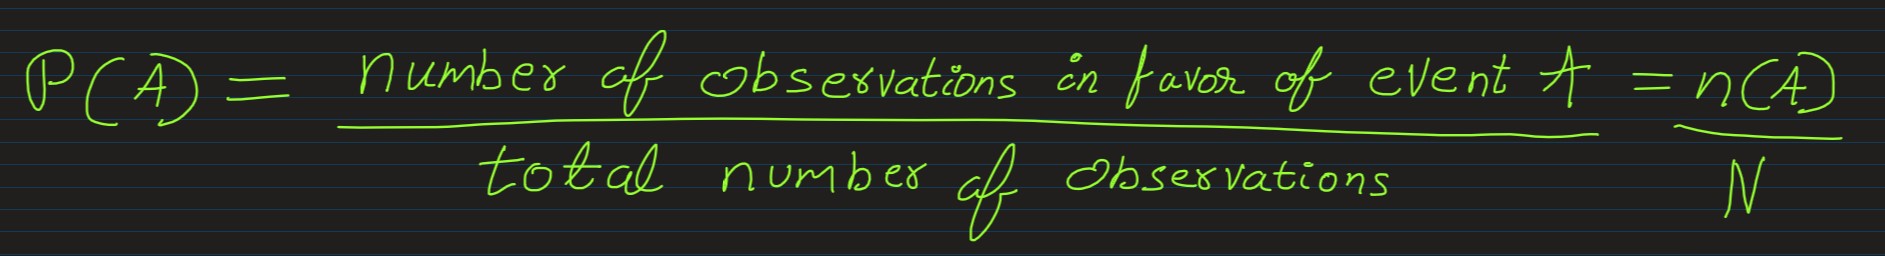 P(A) = number of observations in favor of event A = n(A)
total number of observations N